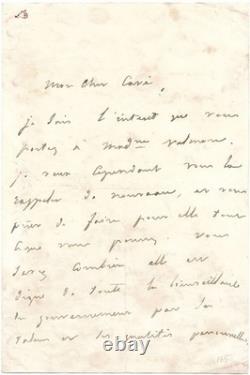 Mon cher Cavé,
je sais l'interet que vous
portez à mad.me valmore.
je veux cependant vous la
rappeler de nouveau, et vous
prier de faire pour elle tout
ce que vous pourrez. vous
savez combien elle est
digne de toute la bienveillance
du gouvernement par son
talent et les qualités personnelles